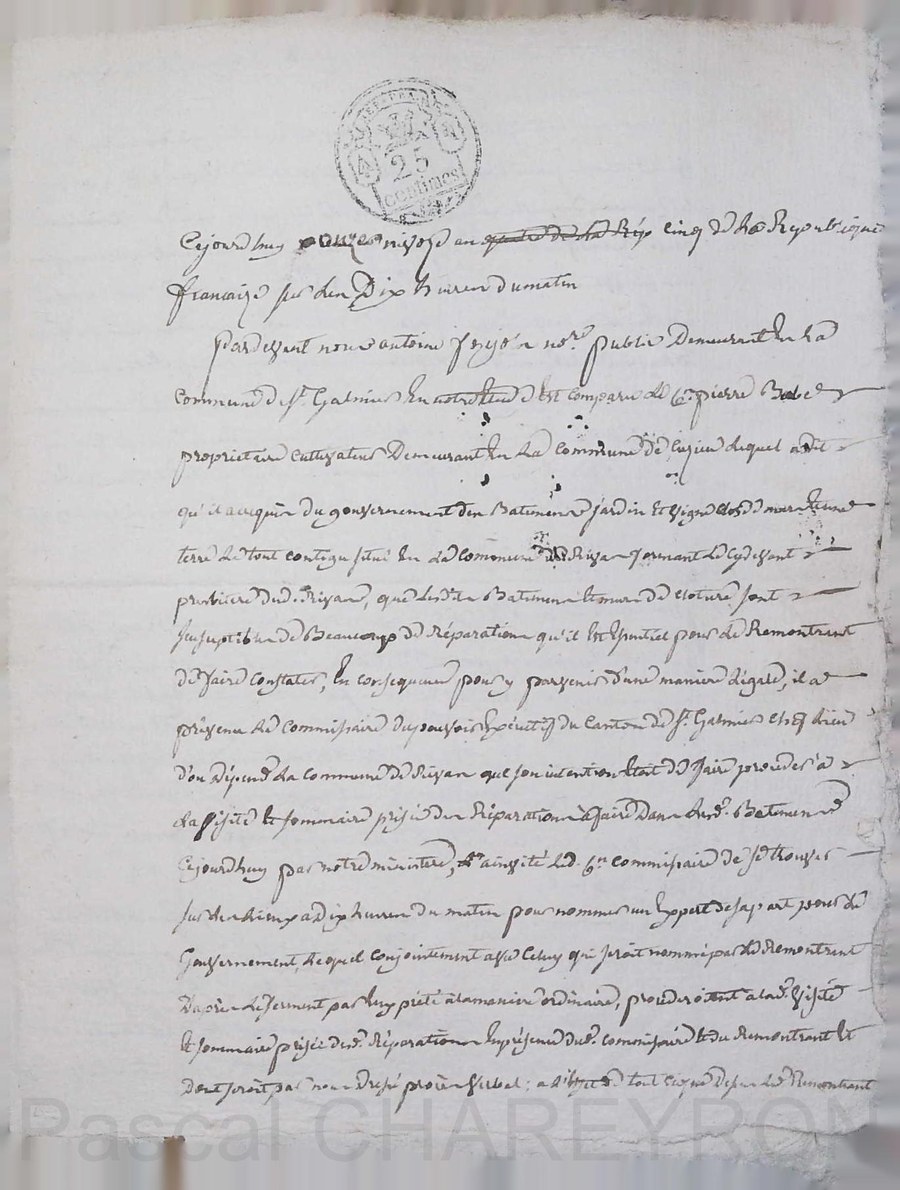 REP. FRA.
25
centimes
Cejourdhuy onze nivose an quatre de la Rép cinq de la Republique
francaize sur les Dix heures du matin
pardevant nous antoine nore. public Demeurant En la
commune de St. Galmier En notre Etude Est comparu le Cn. pierre
proprietaire cultivateur Demeurant En la Commune de Cuzieu lequel a dit
qu'il a acquis du gouvernement des Batimens jardin Et vigne clos de murs Et une
terre le tout contigu situé En la Commune de Rivas formant le cydevant
presbitere dud. Rivas, que lesdits Batimens Et murs de cloture sont
susceptibles de Beaucoup de Réparations qu'il Est Essentiel pour le Remontrant
de faire constater, En consequence pour y parvenir d'une maniere légale, il a
prévenu le Commissaire du pouvoir Exécutif du Canton de St. Galmier
d'ou dépend la commune de Rivas que son intention Etait de faire proceder a
la visite Et sommaire prisée des Réparations à faire Dans lesd. Batimens
Cejourdhuy par notre ministere, Et a invité led. Cn. commissaire de se trouver
sur les lieux a Dix heures du matin pour nommer un Expert de sa part pour le
Gouvernement, lequel conjointement avec celuy qui seroit nommé par le Remontrant
D'après le serment par Eux prété a la maniere ordinaire, procederoient a lad. visite
Et sommaire prisée desd. Réparations En présence dud. commissaire Et du Remontrant Et
Dont seroit par nous dressé procès verbal; tout ce que dessus led. Remontrant
Pascal CHAREYRON